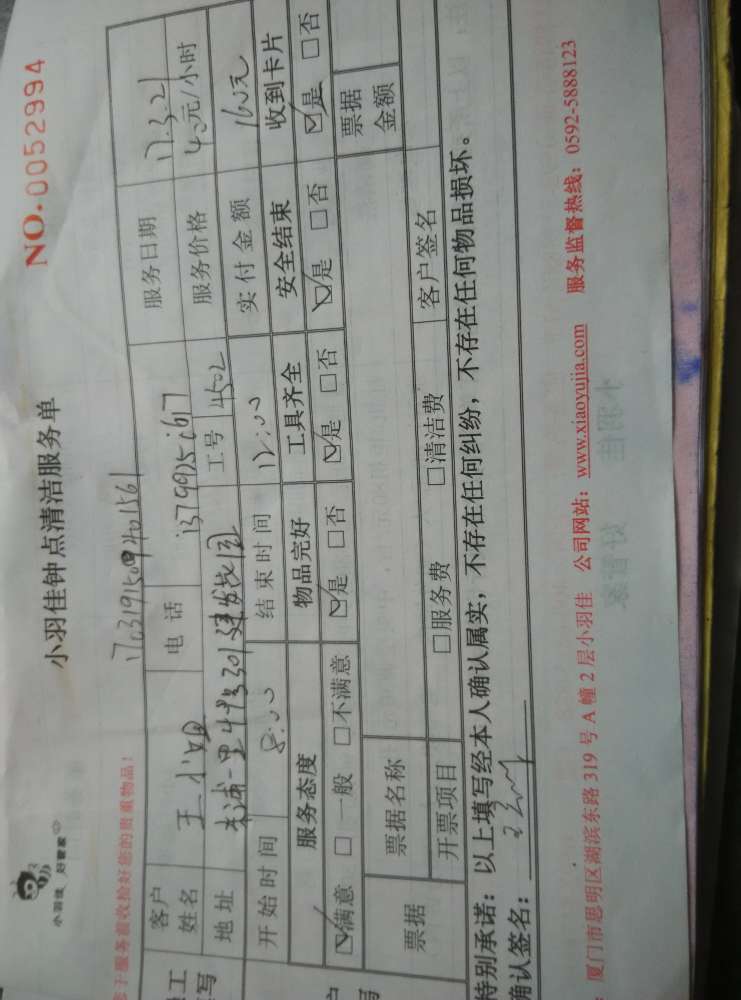 小羽佳 好管家
小羽佳钟点清洁服务单
NO.0052994
于服务前收拾好您的贵重物品！
17031915094401561
客户姓名 王小姐 电话 13799251617 服务日期 17.3.21
地址 服务价格 40元/小时
工号 4502
开始时间 8:00 结束时间 12:00 实付金额 160元
服务态度 物品完好 工具齐全 安全结束 收到卡片
☑满意 □一般 □不满意 ☑是 □否 ☑是 □否 ☑是 □否 ☑是 □否
票据 票据名称 票据金额
开票项目 □服务费 □清洁费 客户签名
特别承诺：以上填写经本人确认属实，不存在任何纠纷，不存在任何物品损坏。
确认签名：
厦门市思明区湖滨东路319号A幢2层小羽佳 公司网站：www.xiaoyujia.com 服务监督热线：0592-5888123